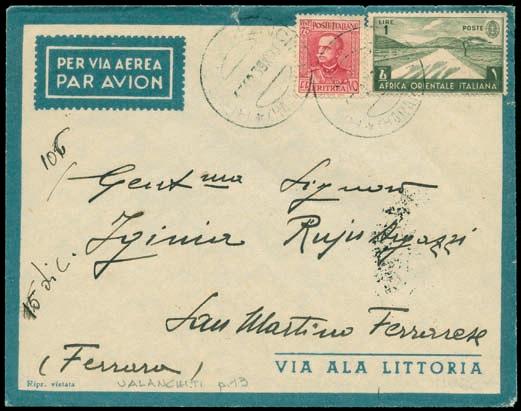 PER VIA AEREA
PAR AVION
POSTE ITALIANE
ERITREA
LIRE
1
POSTE
AFRICA ORIENTALE ITALIANA
Gent ma Signora
Iginia
San Martino Ferrarese
(Ferrara)
VIA ALA LITTORIA
Ripr. vietata
p. 13